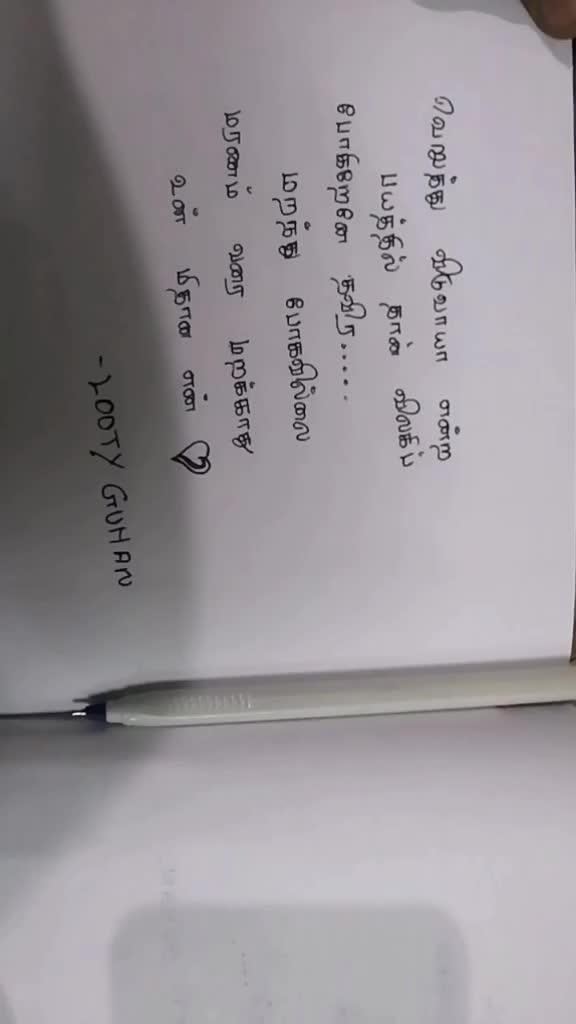 வெறுத்து விடுவாயா என்ற
பயத்தில் தான் விலகிப்
போகிறேனே தவிர.....
மறந்து போகவில்லை
மரணம் வரை மறக்காது
உன் மீதான என் ♡
-LOOTY GUHAN